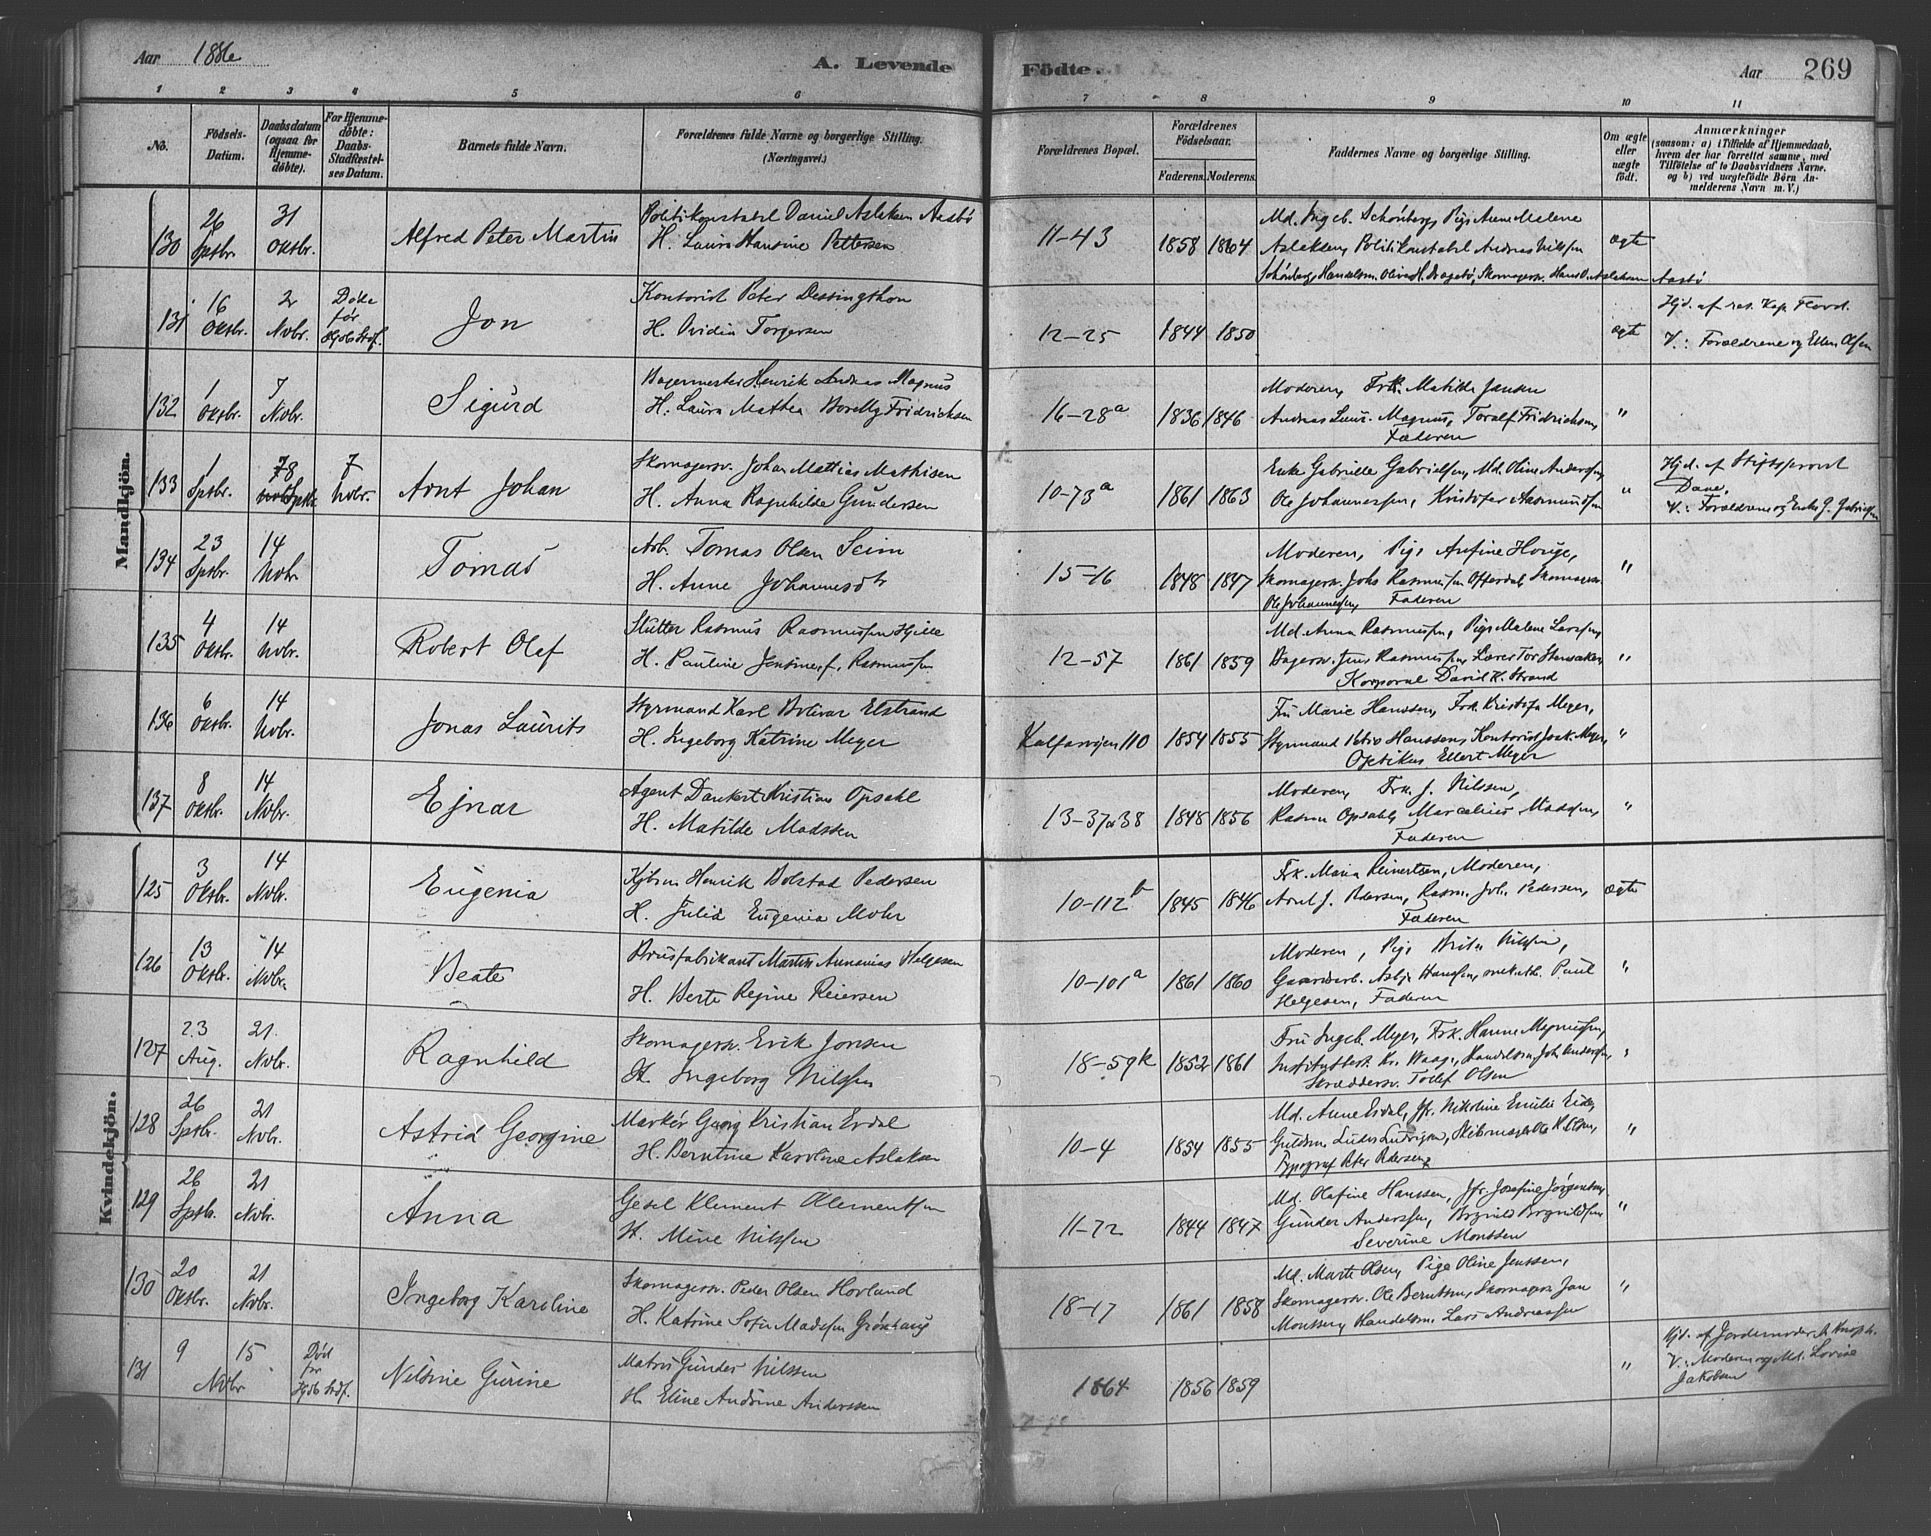 Aar 1886
A. Levende Födte.
Aar 269
1 2 3 4 5 6 7 8 9 10 11
No.
Födsels-Datum.
Daabsdatum (ogsaa for Hjemme-döbte).
For Hjemme-döbte: Daabs-Stadfæstel-ses Datum.
Barnets fulde Navn.
Forældrenes fulde Navne og borgerlige Stilling. (Næringsvei.)
Forældrenes Bopæl.
Forældrenes Födselsaar.
Faderens. Moderens.
Faddernes Navne og borgerlige Stilling.
Om ægte eller uægte födt.
Anmærkninger
(saasom: a) i Tilfælde af Hjemmedaab, hvem der har forrettet samme, med Tilföielse af to Daabsvidners Navne. og b) ved uægtefödte Börn An-melderens Navn m. V.)
Mandkjön.
130 26 Sptbr. 31 Oktbr. Alfred Peter Martin
Politikonstabel Daniel Aslaksen Aasbö
H. Laura Hansine Pettersen
11-43 1858 1864
Md. Ingeb. Schönberg, Pige Anne Malene
Aslaksen, Politikonstabel Andreas Nilsen
Schönberg, Handelsm. Oliver H. Dragebö, Skomagersv. Hans O. Aslaksen Aasbö
ægte
131 16 Oktbr. 2 Novbr. Döde før Hjdb. Stdf. Jon
Kontorist Peter Dessingthon
H. Ovidia Torgersen
12-25 1844 1850
ægte
Hjd. af res. Kap. Flood.
V.: Forældrene og Ellen Olsen
132 1 Oktbr. 7 Novbr. Sigurd
Bagermester Henrik Andreas Magnus
H. Laura Mathea Borethy Fridrichsen
16-28a 1836 1846
Moderen, Frk. Matilde Jansen
Andreas Laur. Magnus, Toralf Fridrichsen,
Faderen
"
133 1 Sptbr. 8 Sptbr. 7 Novbr. Arnt Johan
Skomagersv. Johan Mattias Mathisen
H. Anna Ragnhilde Gundersen
10-73a 1861 1863
Enke Gabrielle Gabrielsen, Md. Oline Andersen,
Ole Johannessen, Kristofer Aasmundsen
"
Hjd. af Stiftsprovst
Daae,
V.: Forældrene og Enke G. Gabrielsen
134 23 Sptbr. 14 Novbr. Tomas
Arb. Tomas Olsen Seim
H. Anne Johannesdtr
15-16 1848 1847
Moderen, Pige Arefine Hauge,
Skomagersv. Johs Rasmussen Offerdal, Skomagersv.
Ole Johannessen, Faderen
"
135 4 Oktbr. 14 Novbr. Robert Olaf
Slutter Rasmus Rasmussen Hjelle
H. Pauline Jensine f. Rasmussen
12-57 1861 1859
Md. Anna Rasmussen, Pige Malene Larsen,
Bagersv. Jens Rasmussen, Lærer Tor Stensaker,
Korporal David K. Strand
"
136 6 Oktbr. 14 Novbr. Jonas Laurits
Styrmand Karl Bolivar Elstrand
H. Ingeborg Katrine Meyer
Kalfarvejen 110 1854 1855
Fru Marie Hanssen, Frk. Kristofa Meyer,
Styrmand Hanssen, Kontorist Joak. Meyer,
Optikus Ellert Meyer
"
137 8 Oktbr. 14 Novbr. Ejnar
Agent Dankert Kristian Opsahl
H. Matilde Madssen
13-37&38 1848 1856
Moderen, Frk. J. Nilssen,
Rasm. Opsahl, Marcelius Madssen,
Faderen
"
Kvindekjön.
125 3 Oktbr. 14 Novbr. Eugenia
Kjbm. Henrik Bolstad Pedersen
H. Julia Eugenia Mohr
10-112b 1845 1846
Frk. Maria Reinertsen, Moderen,
Arnt J. Pedersen, Rasm. Joh. Pedersen,
Faderen
ægte
126 13 Oktbr. 14 Novbr. Beate
Brusfabrikant Martin Annanias Helgesen
H. Berte Regine Reiersen
10-101a 1861 1860
Moderen, Pige Brita Nilssen,
Gaardarb. Asbj. Hansen, Paul
Helgesen, Faderen
"
127 23 Aug. 21 Novbr. Ragnhild
Skomagersv. Erik Jonsen
H. Ingeborg Nilssen
18-59k 1852 1861
Fru Ingeb. Meyer, Frk. Hanne Magnussen,
Institutbest. Kr. Waage, Handelsm. Joh. Andersen,
Skræddersv. Tollef Olsen
"
128 26 Sptbr. 21 Novbr. Astrid Georgine
Markör Georg Kristian Erdal
H. Berntine Karoline Aslaksen
10-4 1854 1855
Md. Anne Erdal, Jfr. Nikoline Emilie Eide,
Guldsm. Luder Ludvigsen, Ole K. Olsen,
Typograf Peter Pedersen
"
129 26 Sptbr. 21 Novbr. Anna
Gesel Klement Klementsen
H. Mine Nilssen
11-72 1844 1847
Md. Olafine Hanssen, Jfr. Josefine Jörgensen,
Gunder Anderssen, Brynild Brynildsen
Severine Monssen
"
130 20 Oktbr. 21 Novbr. Ingeborg Karoline
Skomagersv. Peder Olsen Hovland
H. Katrine Sofie Madssen Grönhaug
18-17 1861 1858
Md. Marte Olsen, Pige Oline Jenssen,
Skomagersv. Ole Berntsen, Skomagersv. Jan
Monssen, Handelsm. Lars Andreassen
"
131 9 15 Novbr Död før Hjdb. Stdf. Nilsine Gurine
Matros Gunder Nilssen
H. Eline Andrine Anderssen
1864 1856 1859
"
Hjd. af Jordemoder A. Knoph.
V.: Moderen og Md. Lovise
Jakobsen